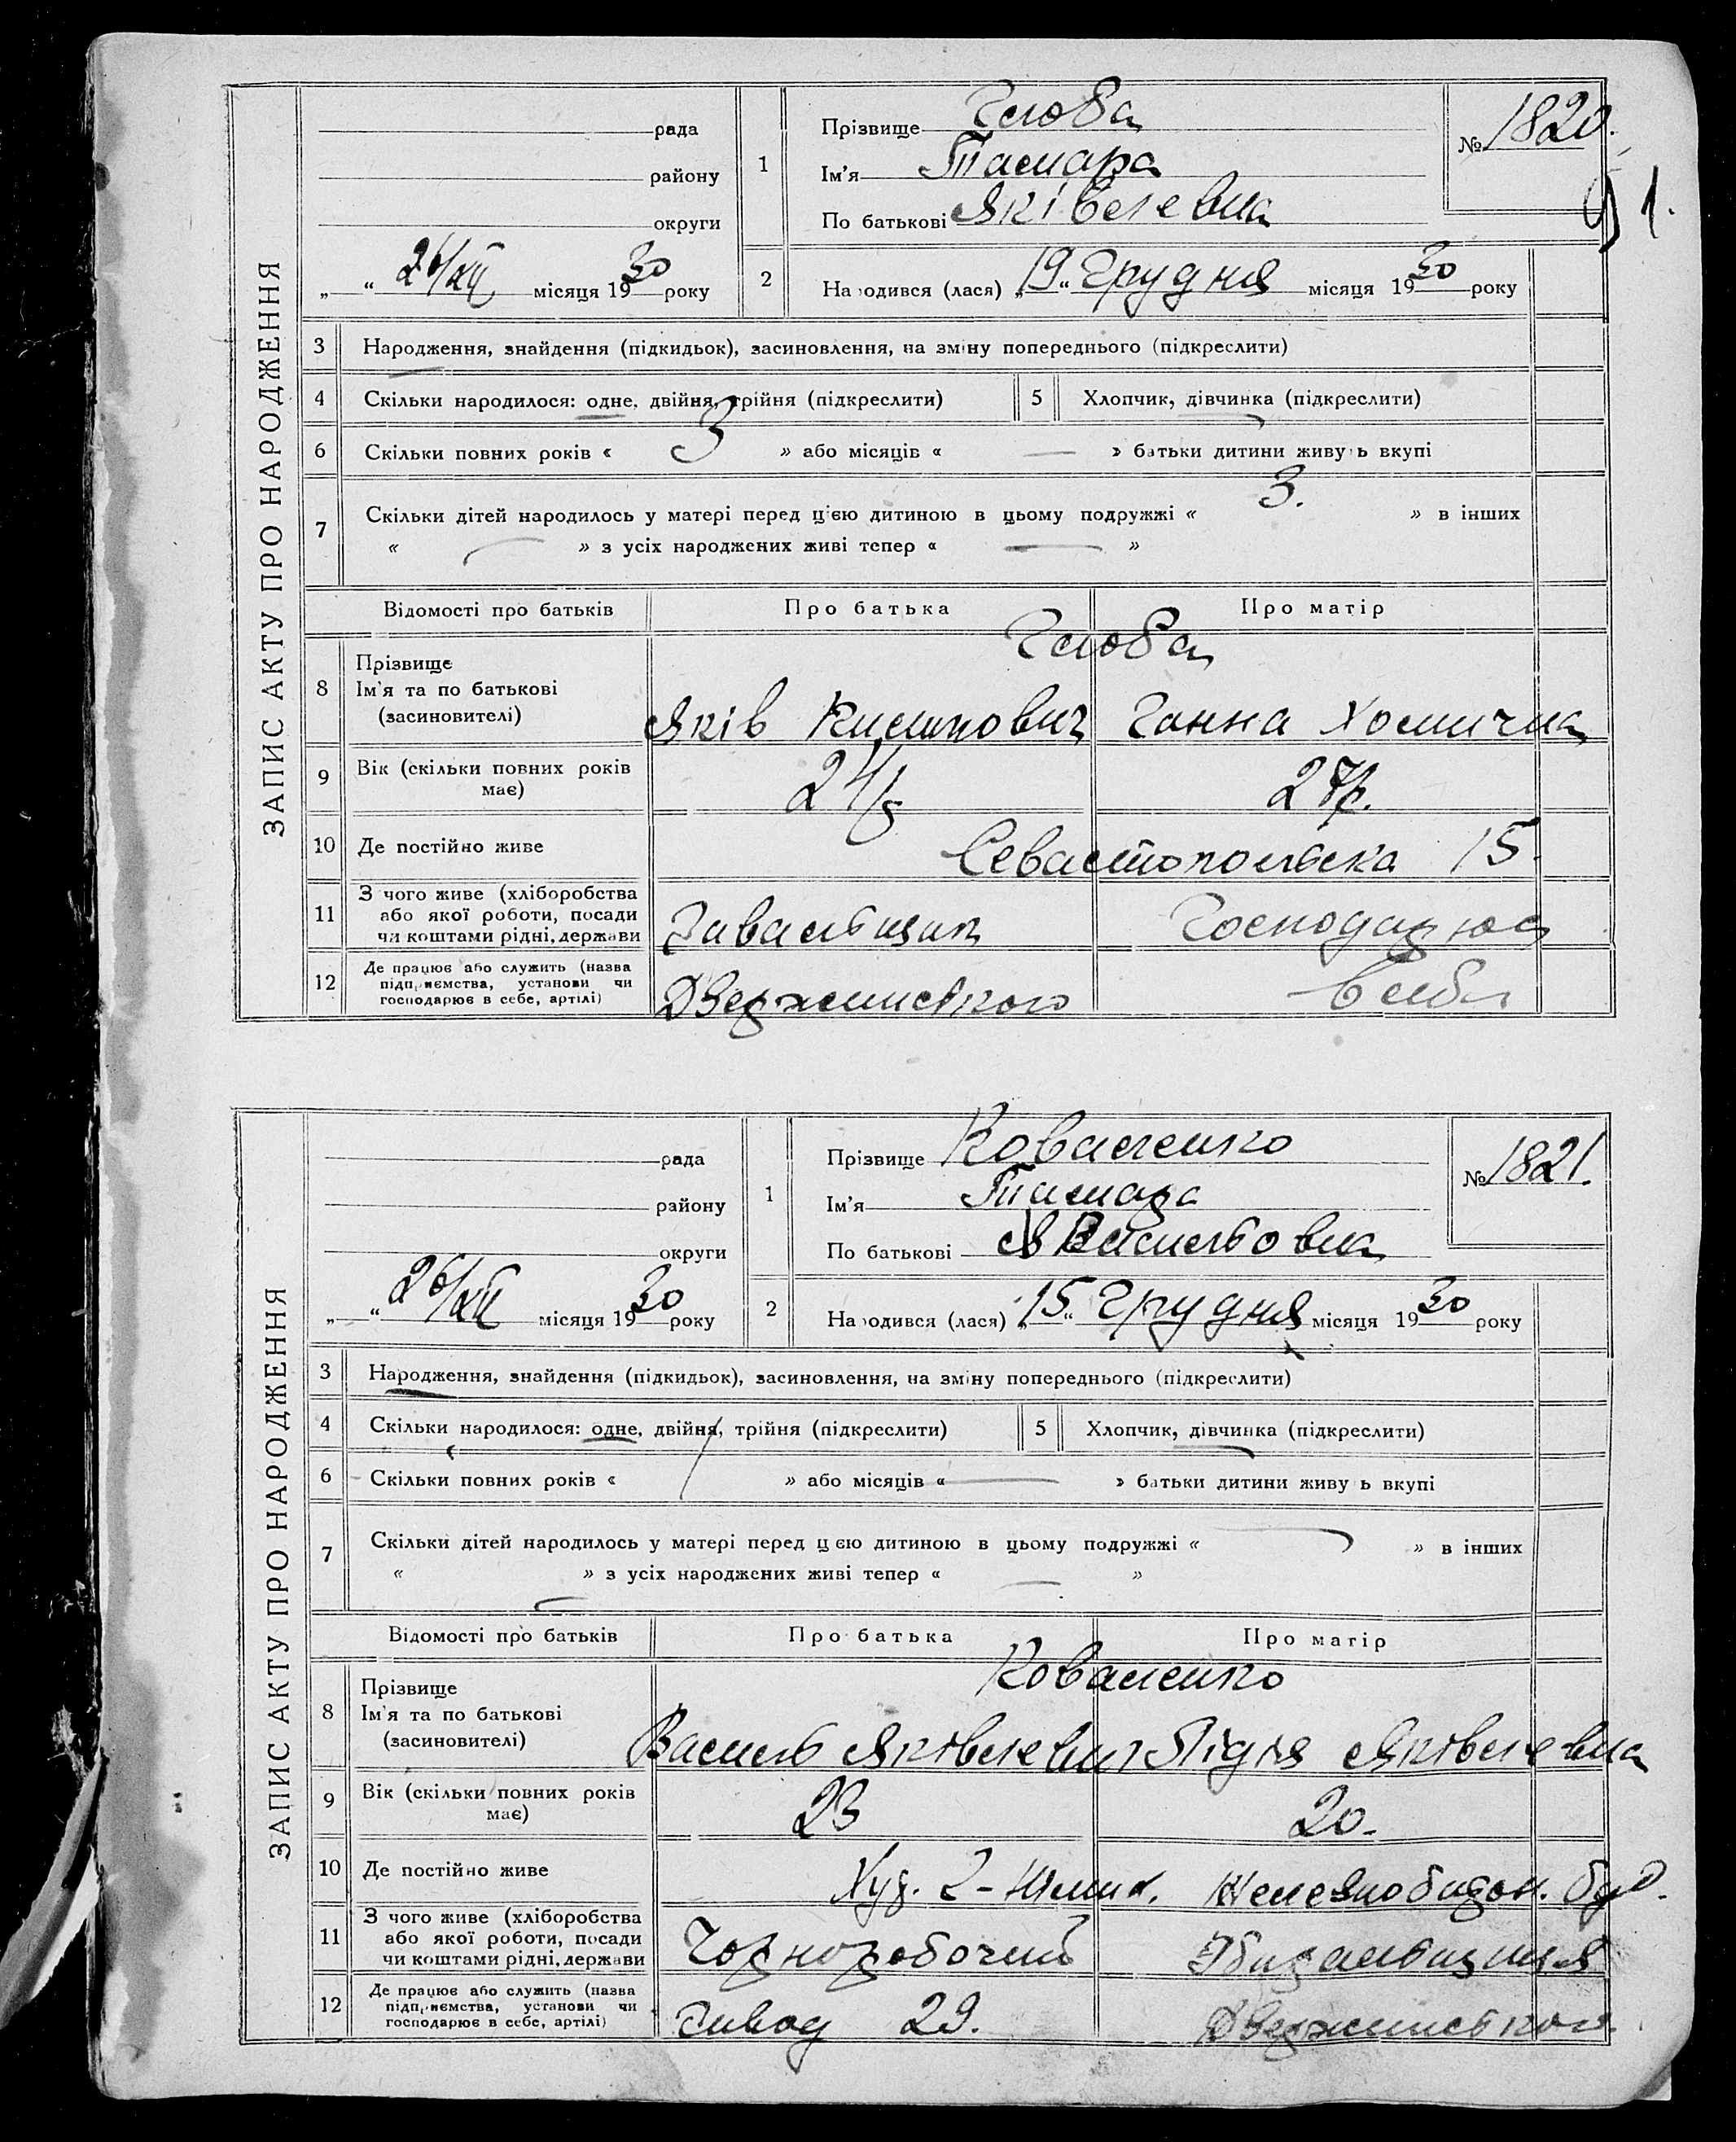 ЗАПИС АКТУ ПРО НАРОДЖЕННЯ
рада
району
округи
„ “ 26/XII місяця 1930 року
1
Прізвище Глоба
Ім'я Тамара
По батькові Яківлевна
№ 1820.
91.
2
Народився (лася) „19“ Грудня місяця 1930 року
3 Народження, знайдення (підкидьок), засиновлення, на зміну попереднього (підкреслити)
4 Скільки народилося: одне, двійня, трійня (підкреслити)
5 Хлопчик, дівчинка (підкреслити)
6 Скільки повних років « 3 » або місяців « — » батьки дитини живуть вкупі
7 Скільки дітей народилось у матері перед цією дитиною в цьому подружжі « 3. » в інших
« — » з усіх народжених живі тепер « — »
Відомості про батьків Про батька Про матір
8 Прізвище
Ім'я та по батькові
(засиновителі)
Глоба
Яків Ганна Хомична
9 Вік (скільки повних років
має)
24 27р.
10 Де постійно живе Севастопольска 15.
11 З чого живе (хліборобства
або якої роботи, посади
чи коштами рідні, держави
Господарює
12 Де працює або служить (назва
підприємства, установи чи
господарює в себе, артілі)
Дзержинського в себе
ЗАПИС АКТУ ПРО НАРОДЖЕННЯ
рада
району
округи
„ “ 26/XII місяця 1930 року
1
Прізвище Коваленко
Ім'я Тамара
По батькові Васильовна
№ 1821.
2
Народився (лася) „15“ Грудня місяця 1930 року
3 Народження, знайдення (підкидьок), засиновлення, на зміну попереднього (підкреслити)
4 Скільки народилося: одне, двійня, трійня (підкреслити)
5 Хлопчик, дівчинка (підкреслити)
6 Скільки повних років « 1 » або місяців « — » батьки дитини живуть вкупі
7 Скільки дітей народилось у матері перед цією дитиною в цьому подружжі « — » в інших
« — » з усіх народжених живі тепер « — »
Відомості про батьків Про батька Про матір
8 Прізвище
Ім'я та по батькові
(засиновителі)
Коваленко
Василь Яківлевич Лідія Яківлевна
9 Вік (скільки повних років
має)
23 20.
10 Де постійно живе
11 З чого живе (хліборобства
або якої роботи, посади
чи коштами рідні, держави
Чорноробочий
12 Де працює або служить (назва
підприємства, установи чи
господарює в себе, артілі)
Завод 29. Дзержинського